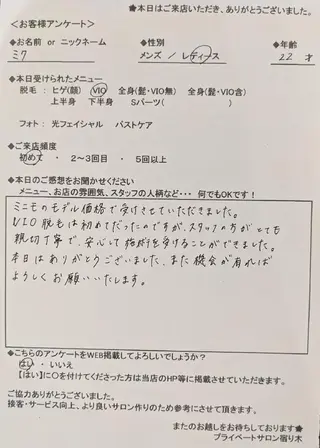 ★本日はご来店いただき、ありがとうございました。
＜お客様アンケート＞
◆お名前 or ニックネーム ◆性別 ◆年齢
ミク メンズ / レディース 22才
◆本日受けられたメニュー
脱毛：ヒゲ(顔) VIO 全身(髭・VIO無) 全身(髭・VIO含)
上半身 下半身 Sパーツ( )
フォト： 光フェイシャル バストケア
◆ご来店頻度
初めて ・ 2～3回目 ・ 5回以上
◆本日のご感想をお聞かせください
メニュー、お店の雰囲気、スタッフの人柄など･･･ 何でもOKです！
ミニモのモデル価格で受けさせていただきました。
VIO脱毛は初めてだったのですが、スタッフの方がとても
親切丁寧で、安心して施術を受けることができました。
本日はありがとうございました、また機会が有れば
よろしくお願いいたします。
◆こちらのアンケートをWEB掲載してよろしいでしょうか？
はい ・ いいえ
【はい】に〇を付けてくださった方は当店のHP等に掲載させていただきます。
ご協力ありがとうございました。
接客・サービス向上、より良いサロン作りのため参考にさせて頂きます。
またのお越しをお待ちしております★
プライベートサロン宿り木